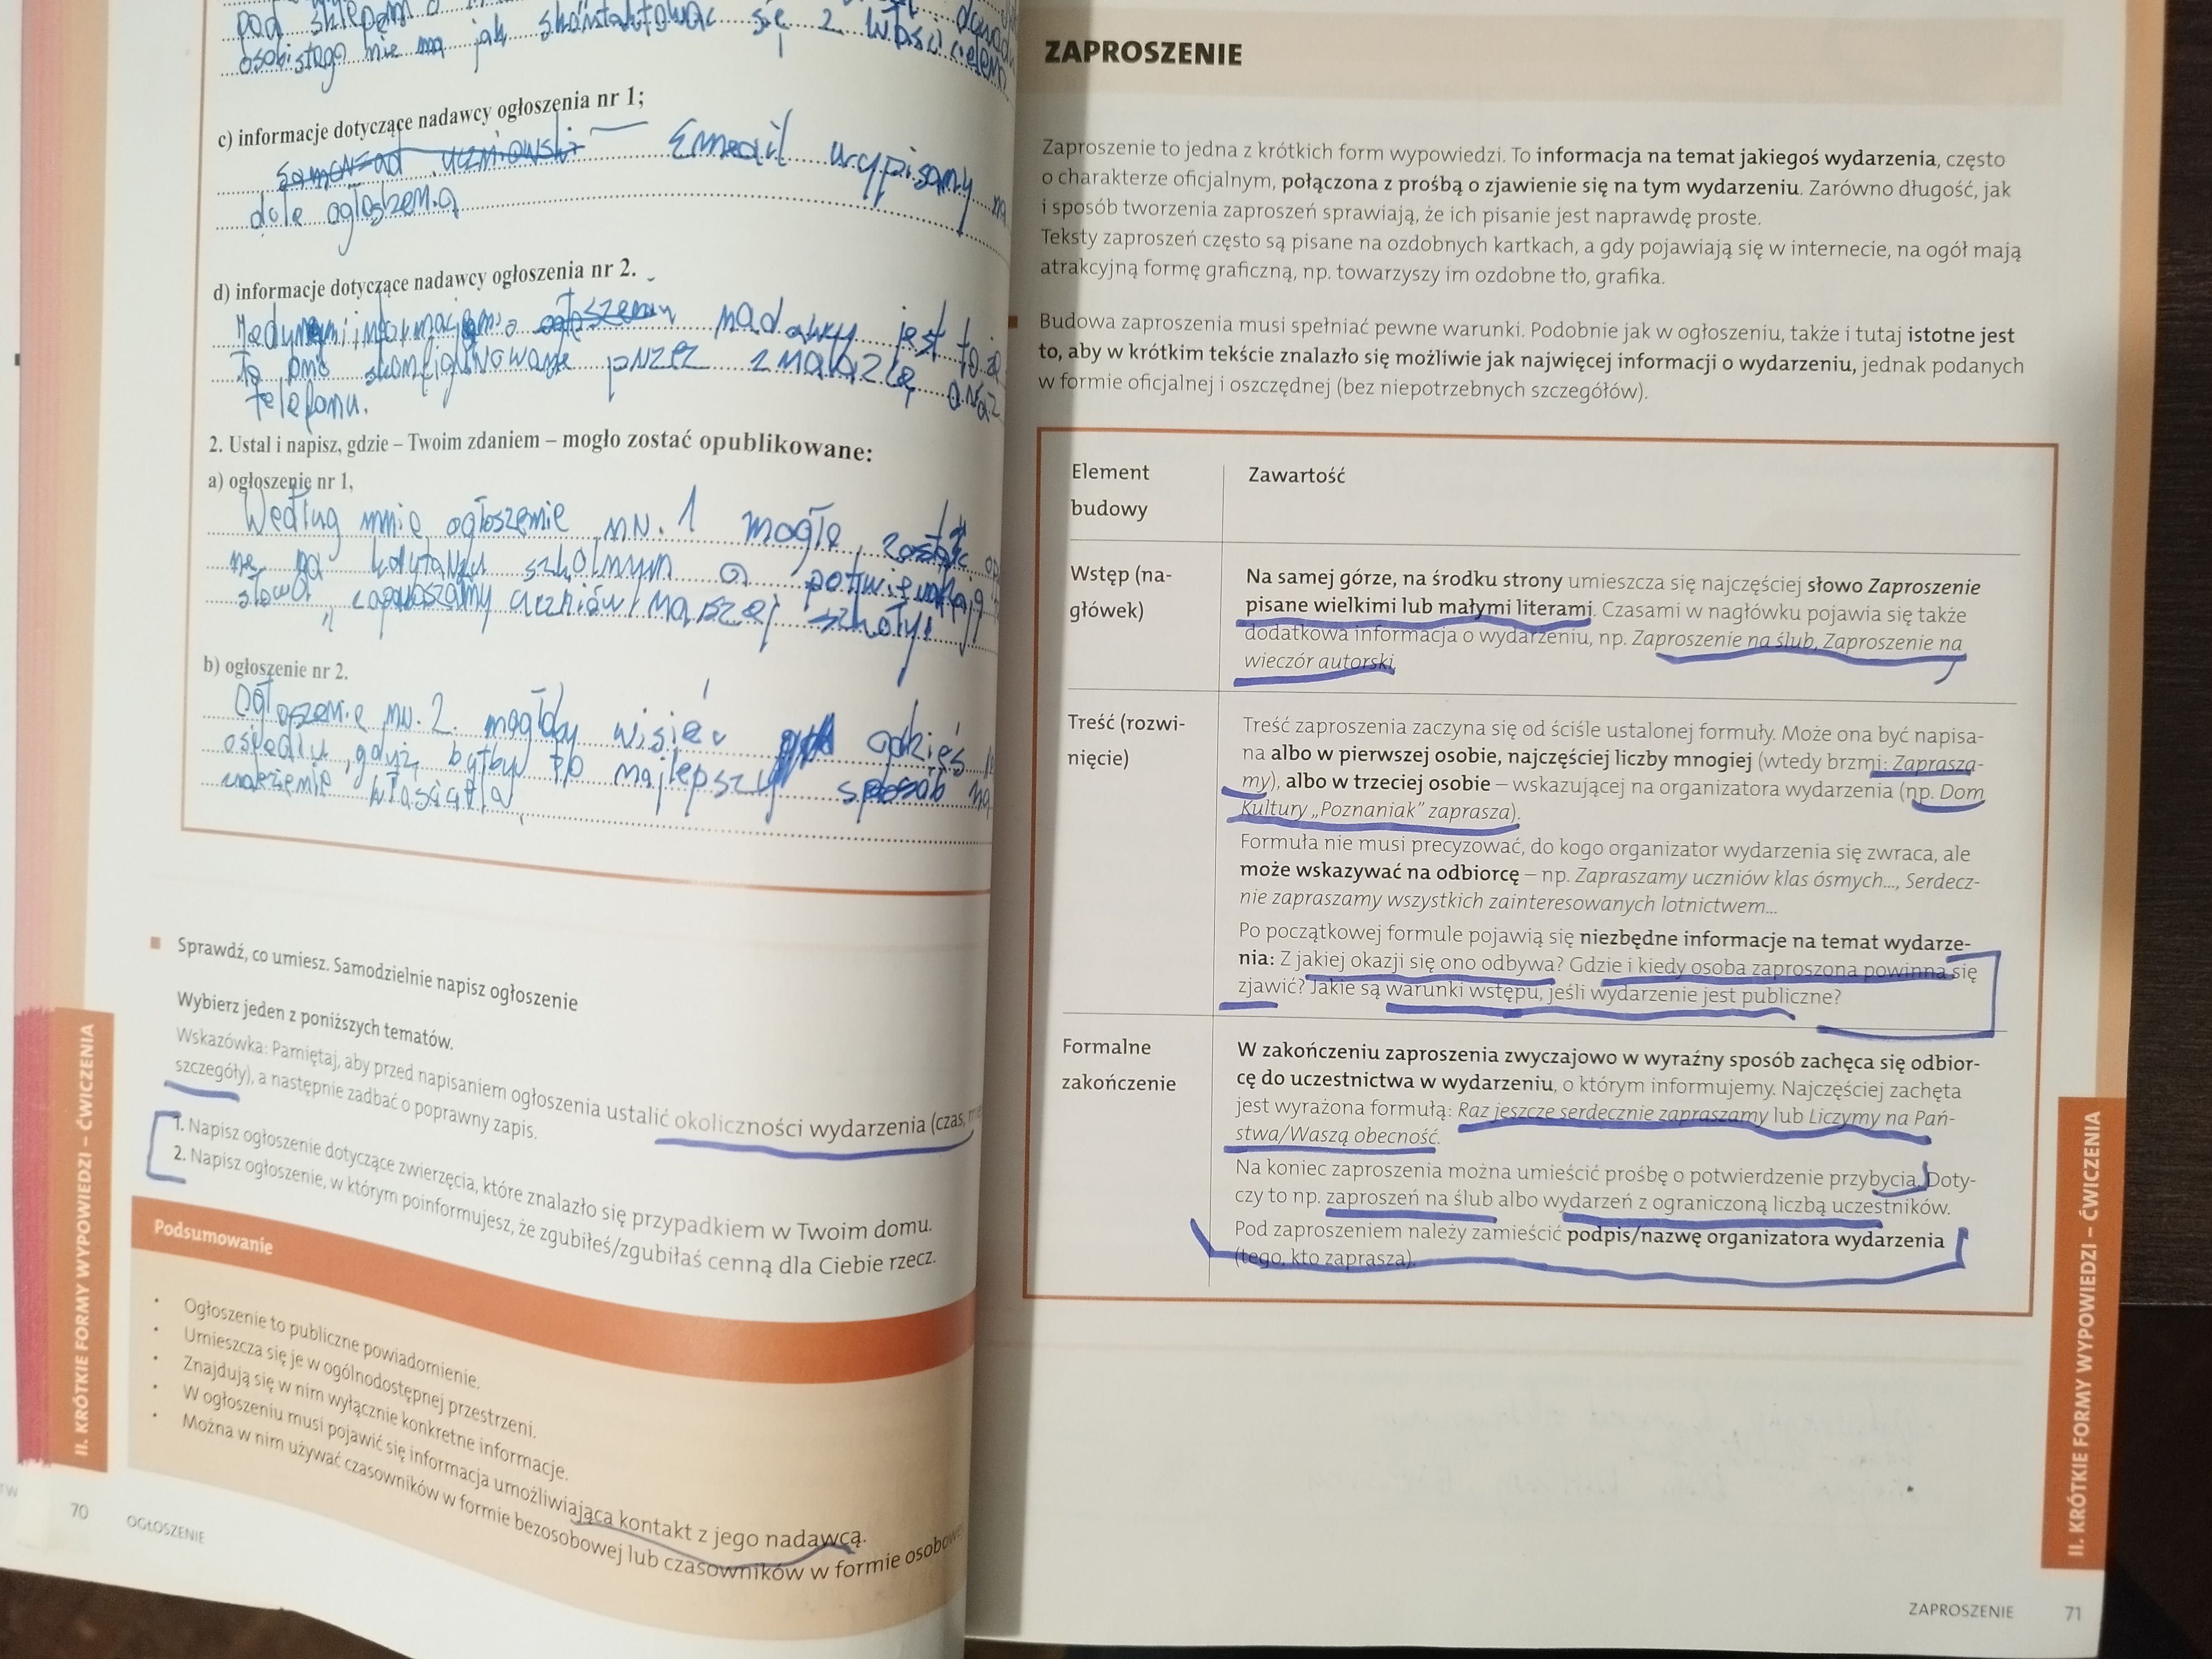 osobistego nie ma jak skontaktować się z właścicielem
c) informacje dotyczące nadawcy ogłoszenia nr 1;
Samorząd uczniowski Emeail wypisany na
dole ogłoszenia
d) informacje dotyczące nadawcy ogłoszenia nr 2.
nadawcy jest to że
przez znalazcę oraz
telefonu.
2. Ustal i napisz, gdzie – Twoim zdaniem – mogło zostać opublikowane:
a) ogłoszenie nr 1,
Według mnie ogłoszenie nr. 1 mogło zostać op
ne na szkolnym
słowa „zapraszamy uczniów naszej szkoły"
b) ogłoszenie nr 2.
Ogłoszenie nr. 2. mogłoby wisieć gdzieś
osiedlu, gdyż byłby to najlepszy sposób na
znalezienie właściciela
Sprawdź, co umiesz. Samodzielnie napisz ogłoszenie
Wybierz jeden z poniższych tematów.
Wskazówka: Pamiętaj, aby przed napisaniem ogłoszenia ustalić okoliczności wydarzenia (czas,
szczegóły), a następnie zadbać o poprawny zapis.
1. Napisz ogłoszenie dotyczące zwierzęcia, które znalazło się przypadkiem w Twoim domu.
2. Napisz ogłoszenie, w którym poinformujesz, że zgubiłeś/zgubiłaś cenną dla Ciebie rzecz.
Podsumowanie
• Ogłoszenie to publiczne powiadomienie.
• Umieszcza się je w ogólnodostępnej przestrzeni.
• Znajdują się w nim wyłącznie konkretne informacje.
• W ogłoszeniu musi pojawić się informacja umożliwiająca kontakt z jego nadawcą.
• Można w nim używać czasowników w formie bezosobowej lub czasowników w formie osobowe
II. KRÓTKIE FORMY WYPOWIEDZI – ĆWICZENIA
70 OGŁOSZENIE
ZAPROSZENIE
Zaproszenie to jedna z krótkich form wypowiedzi. To informacja na temat jakiegoś wydarzenia, często
o charakterze oficjalnym, połączona z prośbą o zjawienie się na tym wydarzeniu. Zarówno długość, jak
i sposób tworzenia zaproszeń sprawiają, że ich pisanie jest naprawdę proste.
Teksty zaproszeń często są pisane na ozdobnych kartkach, a gdy pojawiają się w internecie, na ogół mają
atrakcyjną formę graficzną, np. towarzyszy im ozdobne tło, grafika.
Budowa zaproszenia musi spełniać pewne warunki. Podobnie jak w ogłoszeniu, także i tutaj istotne jest
to, aby w krótkim tekście znalazło się możliwie jak najwięcej informacji o wydarzeniu, jednak podanych
w formie oficjalnej i oszczędnej (bez niepotrzebnych szczegółów).
Element
budowy
Zawartość
Wstęp (na-
główek)
Na samej górze, na środku strony umieszcza się najczęściej słowo Zaproszenie
pisane wielkimi lub małymi literami. Czasami w nagłówku pojawia się także
dodatkowa informacja o wydarzeniu, np. Zaproszenie na ślub, Zaproszenie na
wieczór autorski.
Treść (rozwi-
nięcie)
Treść zaproszenia zaczyna się od ściśle ustalonej formuły. Może ona być napisa-
na albo w pierwszej osobie, najczęściej liczby mnogiej (wtedy brzmi: Zaprasza-
my), albo w trzeciej osobie – wskazującej na organizatora wydarzenia (np. Dom
Kultury „Poznaniak” zaprasza).
Formuła nie musi precyzować, do kogo organizator wydarzenia się zwraca, ale
może wskazywać na odbiorcę – np. Zapraszamy uczniów klas ósmych..., Serdecz-
nie zapraszamy wszystkich zainteresowanych lotnictwem...
Po początkowej formule pojawią się niezbędne informacje na temat wydarze-
nia: Z jakiej okazji się ono odbywa? Gdzie i kiedy osoba zaproszona powinna się
zjawić? Jakie są warunki wstępu, jeśli wydarzenie jest publiczne?
Formalne
zakończenie
W zakończeniu zaproszenia zwyczajowo w wyraźny sposób zachęca się odbior-
cę do uczestnictwa w wydarzeniu, o którym informujemy. Najczęściej zachęta
jest wyrażona formułą: Raz jeszcze serdecznie zapraszamy lub Liczymy na Pań-
stwa/Waszą obecność.
Na koniec zaproszenia można umieścić prośbę o potwierdzenie przybycia. Doty-
czy to np. zaproszeń na ślub albo wydarzeń z ograniczoną liczbą uczestników.
Pod zaproszeniem należy zamieścić podpis/nazwę organizatora wydarzenia
(tego, kto zaprasza).
II. KRÓTKIE FORMY WYPOWIEDZI – ĆWICZENIA
ZAPROSZENIE 71